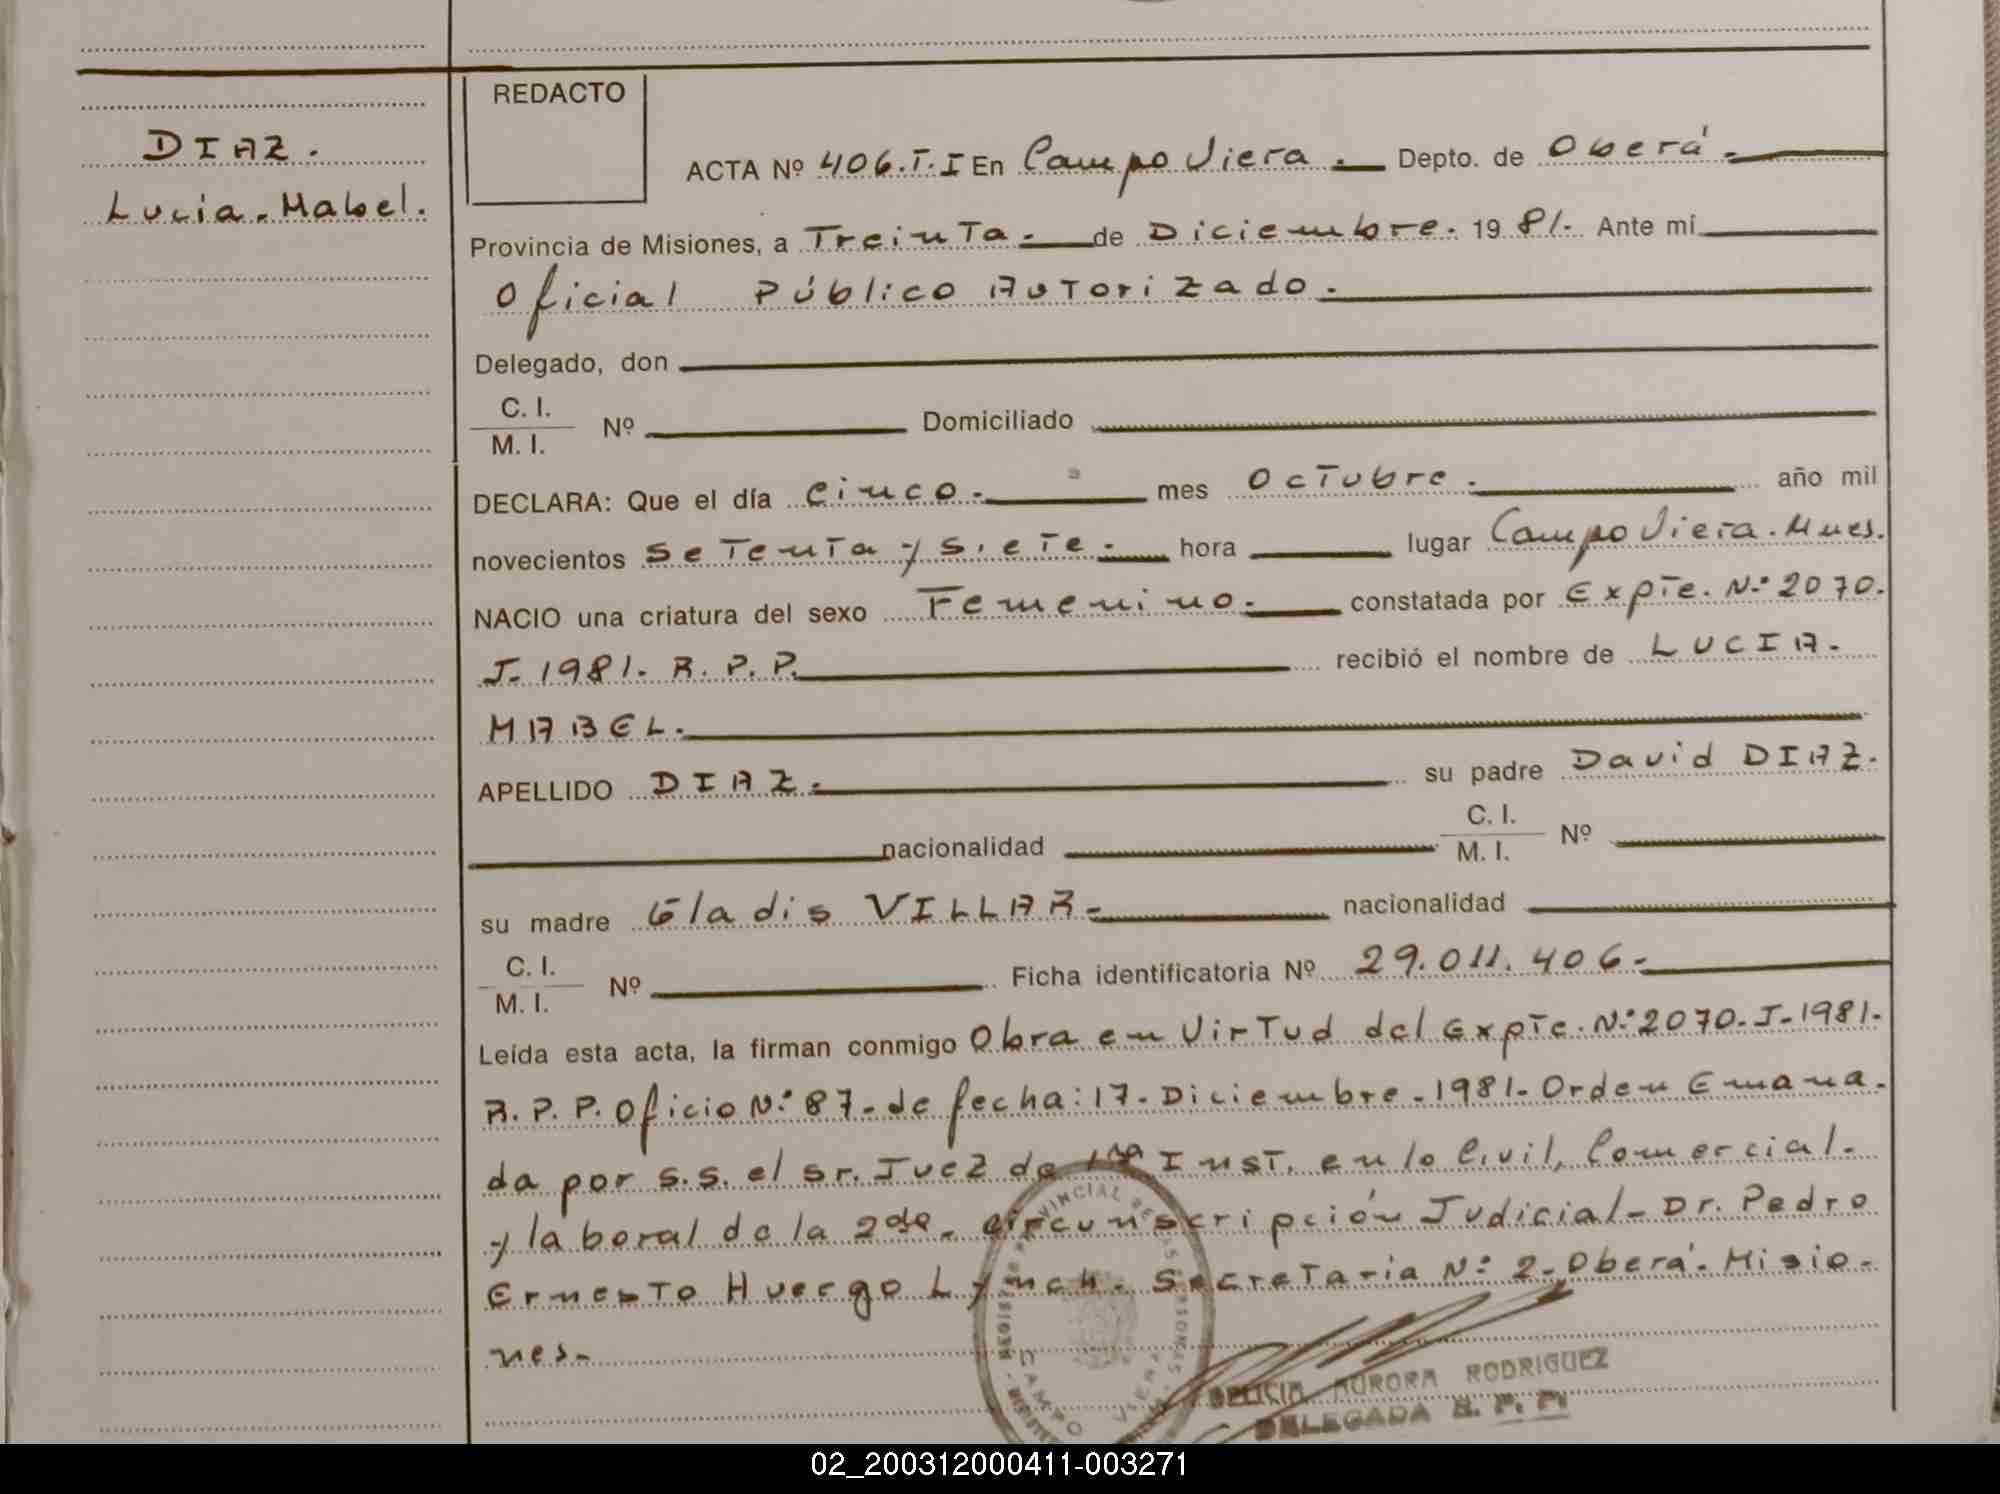 REDACTO
DIAZ.
Lucia. Mabel.
ACTA Nº 406.T.I En Campo Viera. Depto. de Oberá.
Provincia de Misiones, a Treinta. de Diciembre. 19 81. Ante mí
Oficial Público Autorizado.
Delegado, don
C. I.
M. I. Nº Domiciliado
DECLARA: Que el día Cinco. mes Octubre. año mil
novecientos setenta y siete. hora lugar Campo Viera. Mnes.
NACIO una criatura del sexo Femenino. constatada por Expte. Nº 2070.
J. 1981. R. P. P. recibió el nombre de LUCIA.
MABEL.
APELLIDO DIAZ. su padre David DIAZ.
nacionalidad C. I.
M. I. Nº
su madre Gladis VILLAR- nacionalidad
C. I.
M. I. Nº Ficha identificatoria Nº 29.011.406-
Leída esta acta, la firman conmigo Obra en Virtud del Expte. Nº 2070-J-1981-
R. P. P. Oficio Nº 87- de fecha: 17- Diciembre-1981- Orden Emana-
da por s.s. el sr. Juez de 1ra Inst. en lo Civil, Comercial-
y laboral de la 2da. circunscripción Judicial- Dr. Pedro
Ernesto Huergo Lynch. Secretaria Nº 2- Oberá- Misio-
nes-
CAMPO VIERA
DELICIA AURORA RODRIGUEZ
DELEGADA R. P. P.
02_200312000411-003271